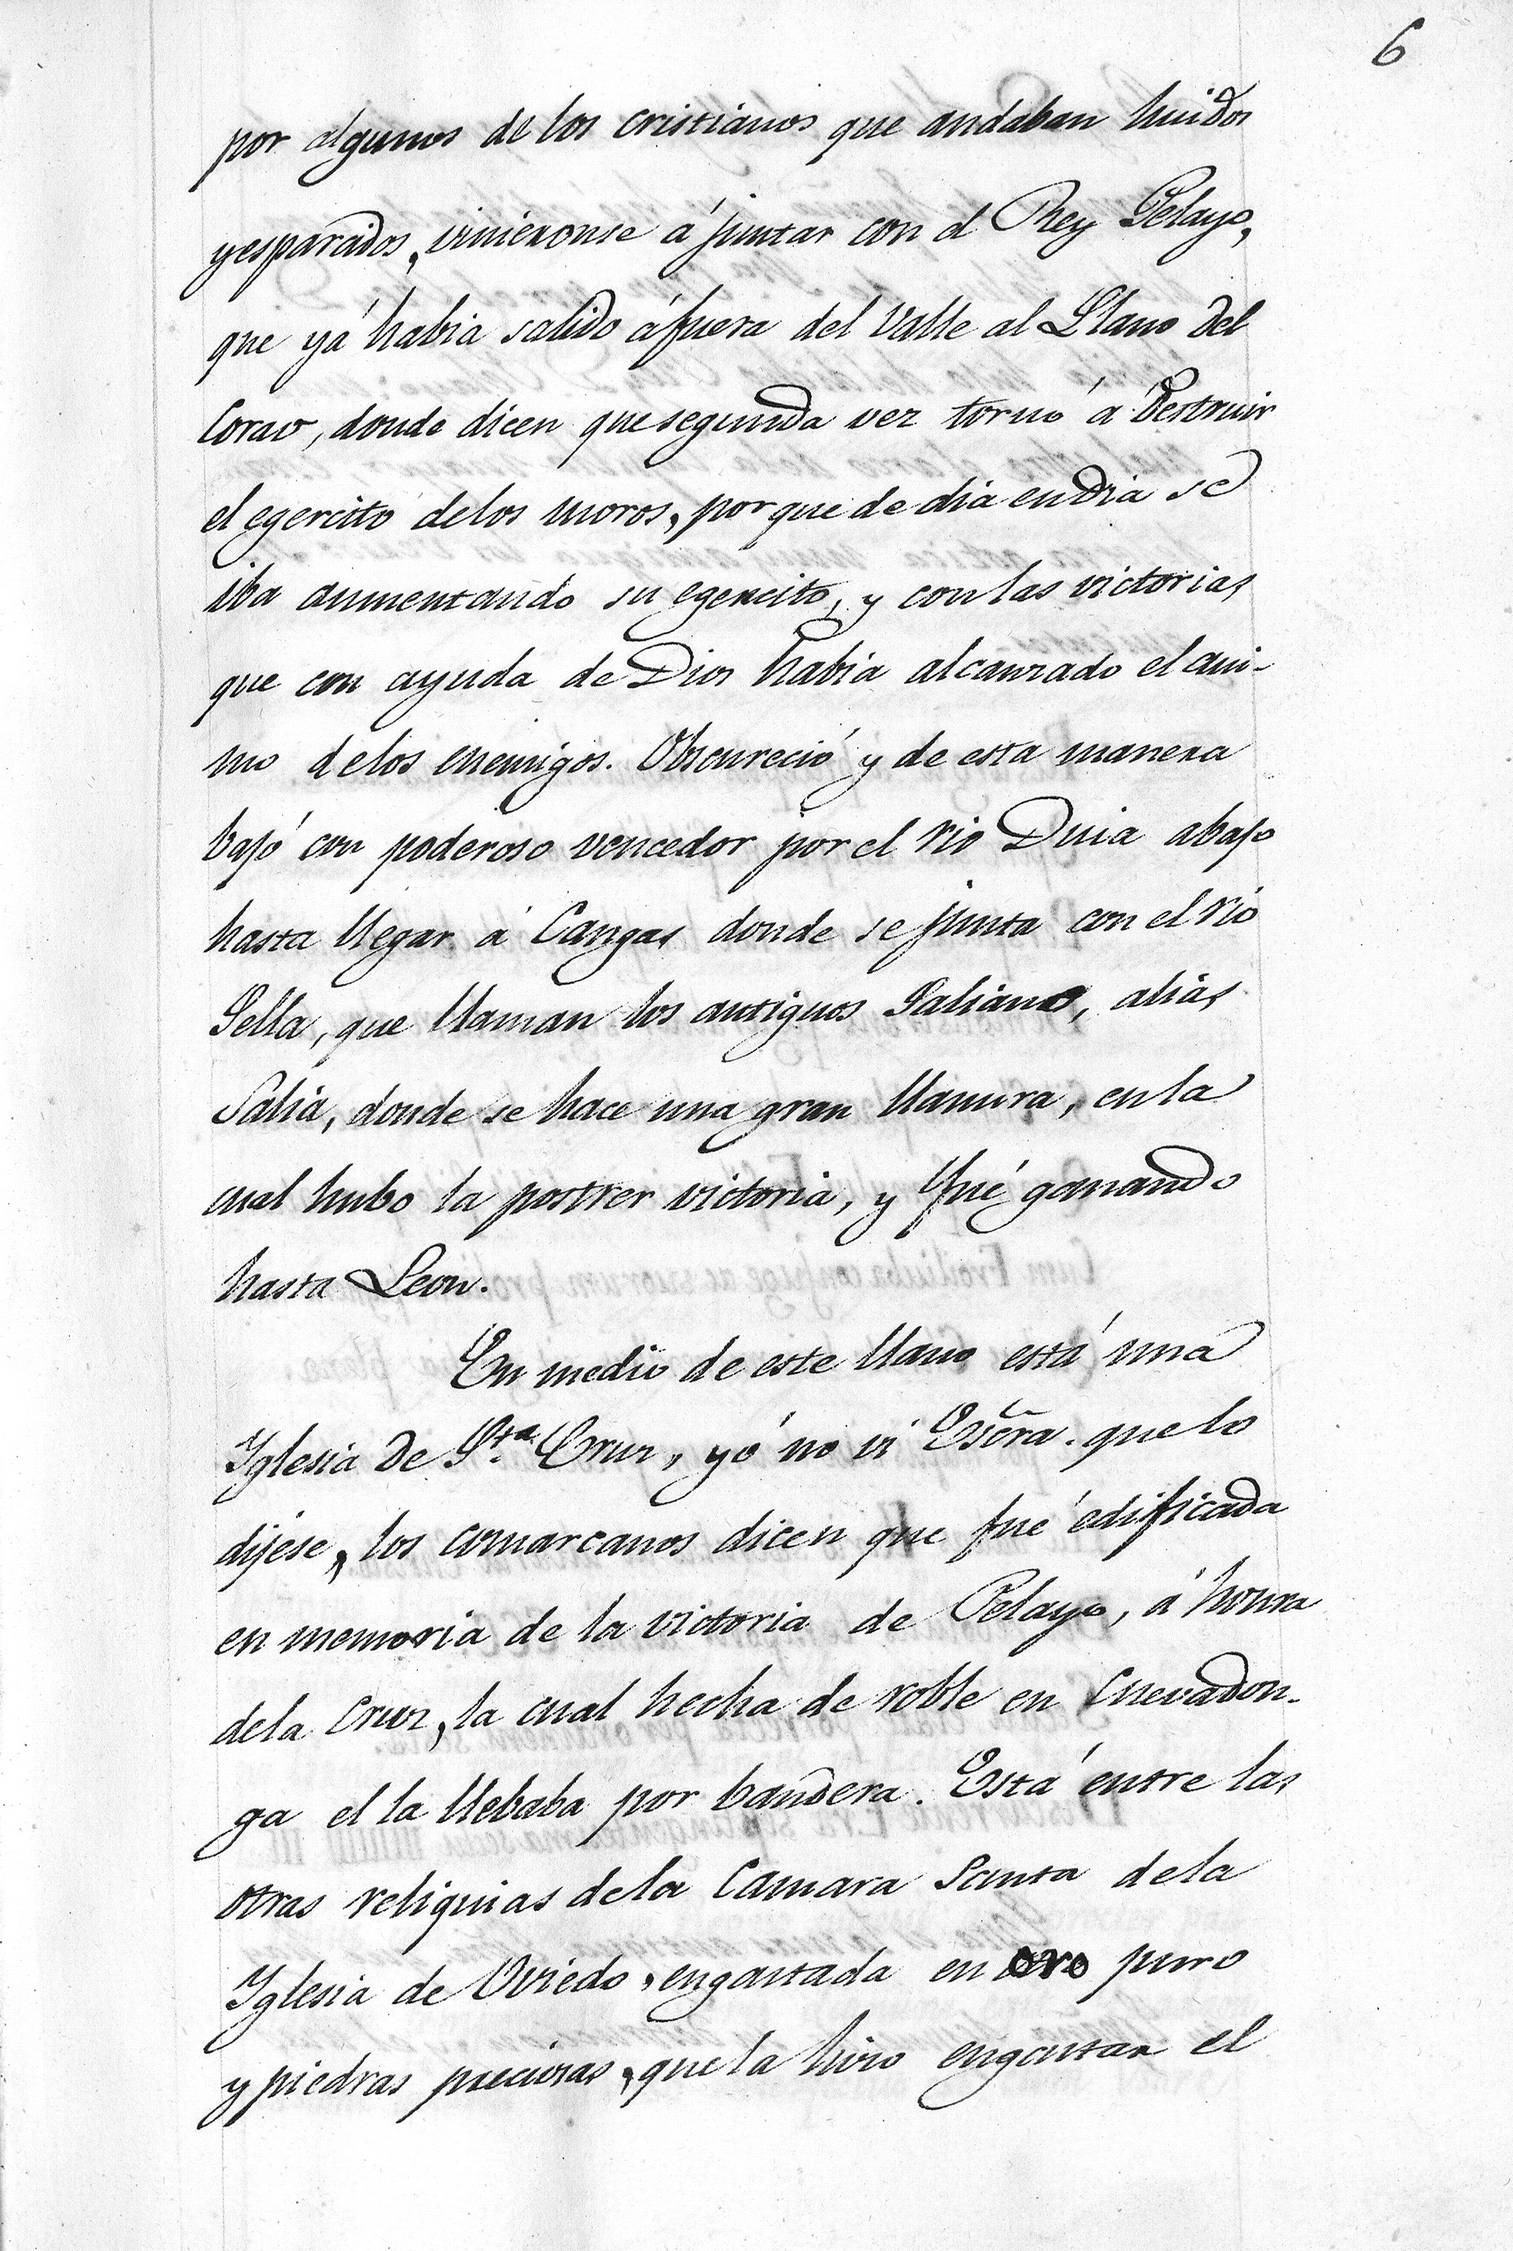 6
por algunos de los cristianos que andaban huidos
y esparados, viniéronse á juntar con el Rey Pelayo,
que yá habia salido áfuera del Valle al Llano del
Corao, donde dicen que segunda vez tornó á destruir
el egercito delos moros, porque de dia en dia se
iba aumentando su egercito, y con las victorias
que con ayuda de Dios habia alcanzado el ani-
mo delos enemigos. Obscureció y de esta manera
bajó con poderoso vencedor por el rio Duia abajo
hasta llegar á Cangas donde se junta con el rio
Sella, que llaman los antiguos Saliano, alias
Salia, donde se hace una gran llanura, en la
cual hubo la postrer victoria, y fué ganando
hasta Leon.
En medio de este llano está una
Iglesia de Sta. Cruz, yó no ví Escra. que lo
dijese, los comarcanos dicen que fué edificada
en memoria de la victoria de Pelayo, á honra
dela Cruz, la cual hecha de roble en Cuevadon-
ga el la llebaba por bandera. Está entre las
otras reliquias dela Camara Santa dela
Iglesia de Oviedo, engastada en oro puro
y piedras preciosas, que la hizo engastar el